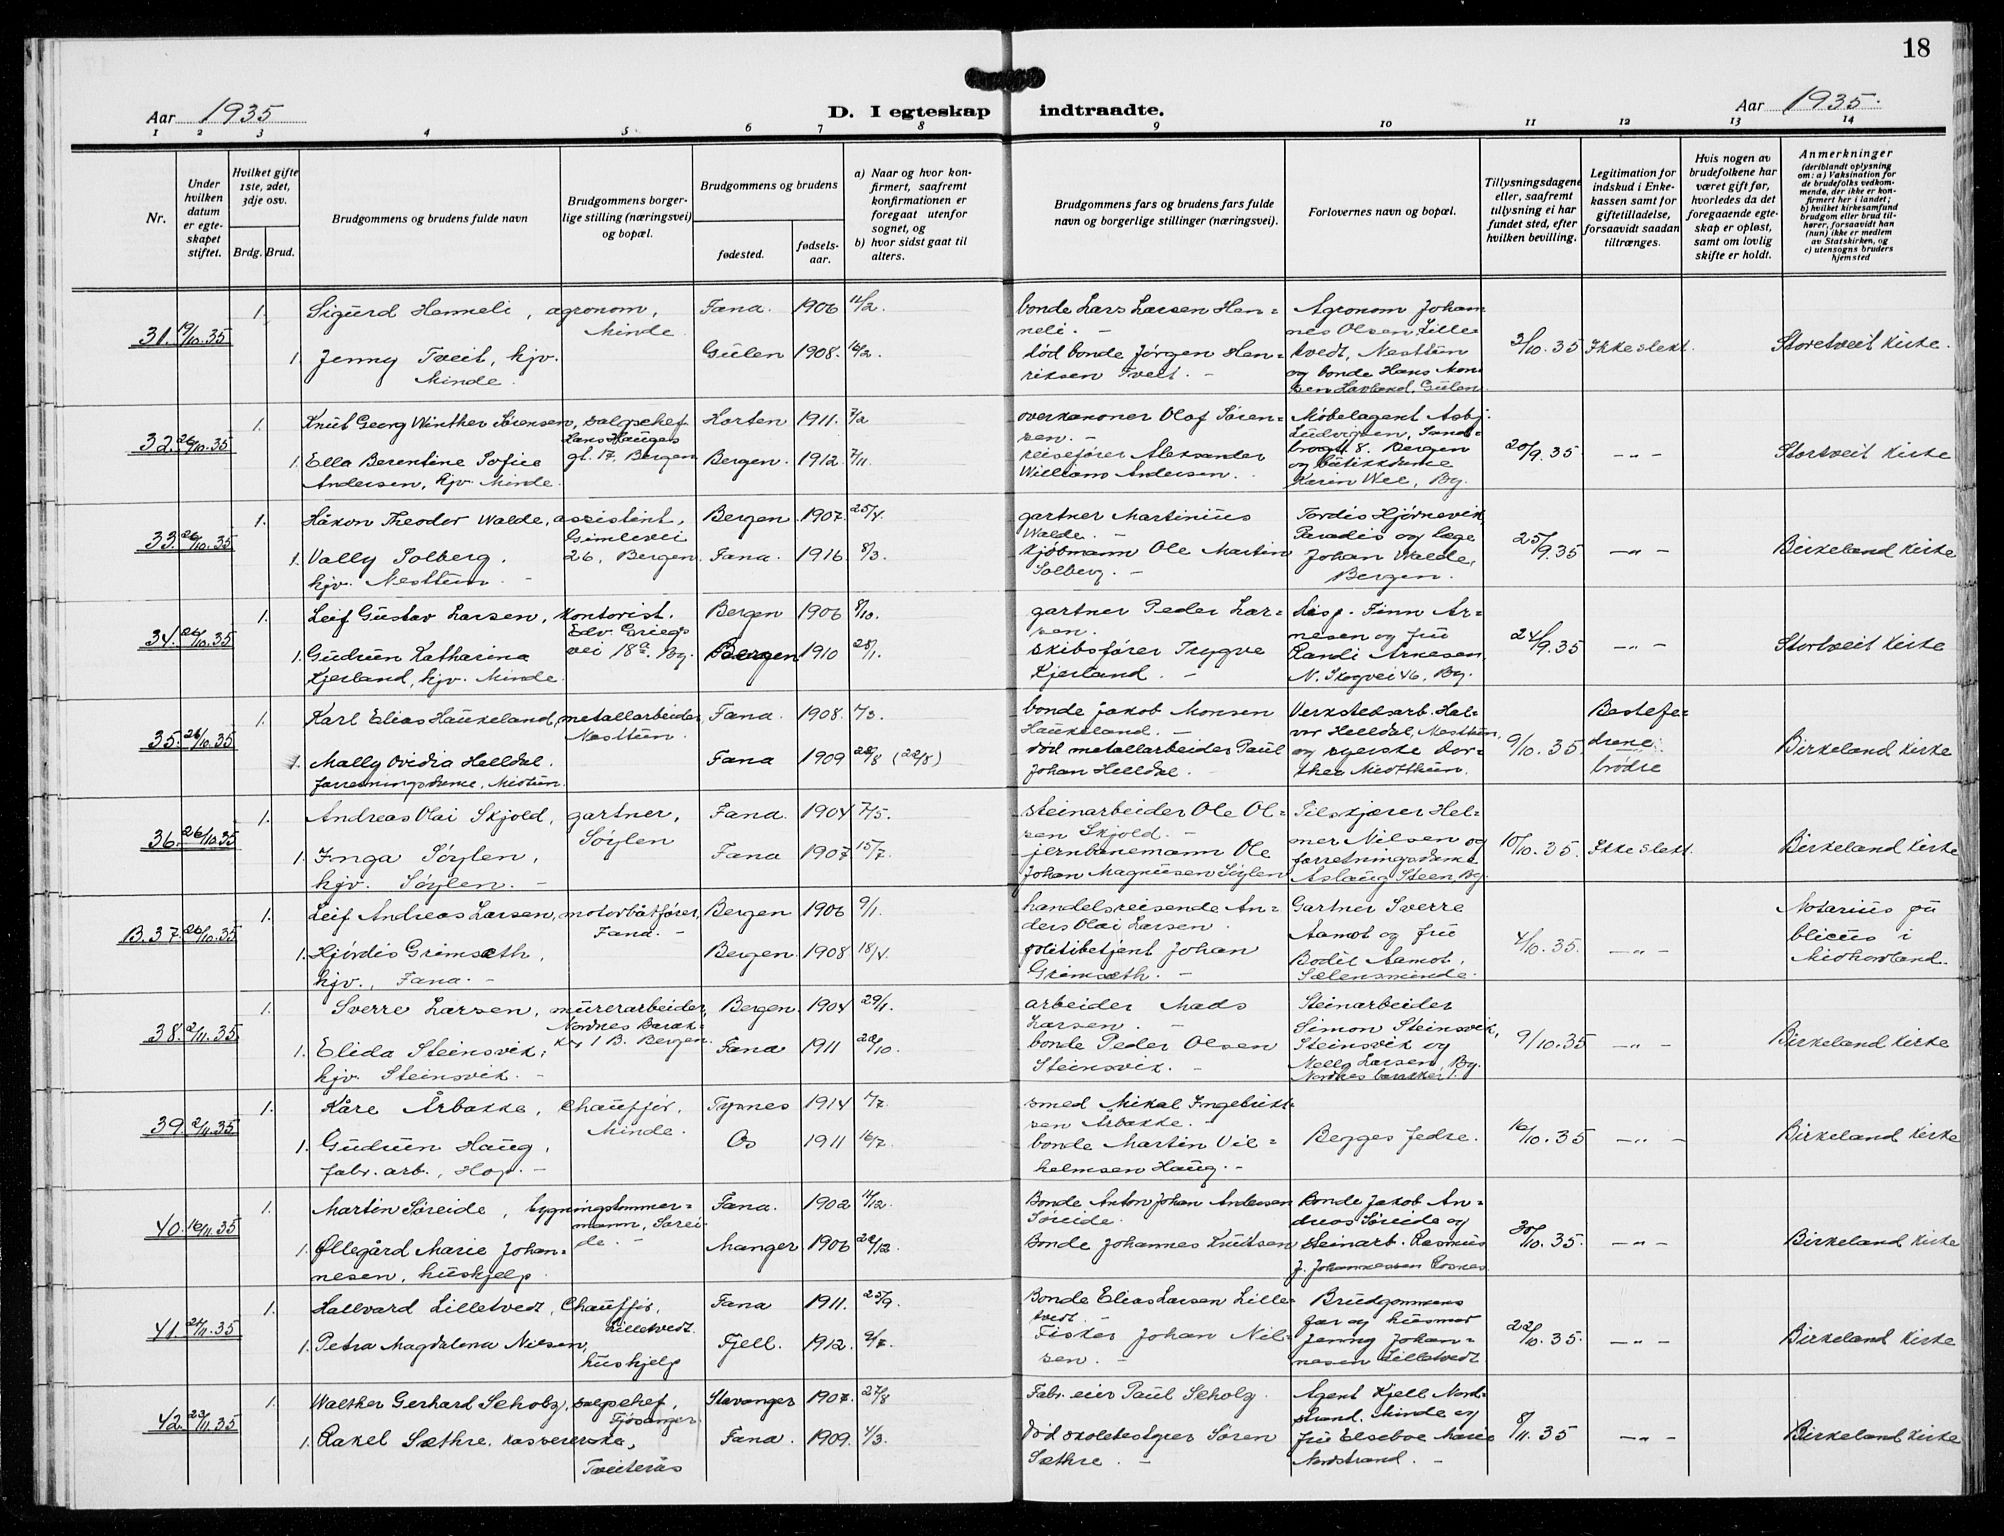 18
Aar 1935
D. I egteskap indtraadte.
Aar 1935.
1 2 3 4 5 6 7 8 9 10 11 12 13 14
Nr.
Under hvilken datum er egteskapet stiftet.
Hvilket gifte 1ste, 2det, 3dje osv.
Brdg. Brud.
Brudgommens og brudens fulde navn
Brudgommens borgerlige stilling (næringsvei) og bopæl.
Brudgommens og brudens
fødested.
fødselsaar.
a) Naar og hvor konfirmert, saafremt konfirmationen er foregaat utenfor sognet, og
b) hvor sidst gaat til alters.
Brudgommens fars og brudens fars fulde navn og borgerlige stillinger (næringsvei).
Forlovernes navn og bopæl.
Tillysningsdagene eller, saafremt tillysning ei har fundet sted, efter hvilken bevilling.
Legitimation for indskud i Enkekassen samt for giftetilladelse, forsaavidt saadan tiltrænges.
Hvis nogen av brudefolkene har været gift før, hvorledes da det foregaaende egteskap er opløst, samt om lovlig skifte er holdt.
Anmerkninger
(deriblandt oplysning om: a) Vaksination for de brudefolks vedkommende, der ikke er konfirmert her i landet; b) hvilket kirkesamfund brudgom eller brud tilhører, forsaavidt han (hun) ikke er medlem av Statskirken, og c) utensogns bruders hjemsted
31. 19/10.35 1. Sigurd Hemneli, agronom, Minde. Fana. 1906 11/2. bonde Lars Larsen Hemneli. -
1. Jenny Tveit, hjv. Minde. Gulen 1908. 16/2. død bonde Jørgen Henriksen Tveit. -
Agronom Johannes Olsen Lilletvedt, Nesttun og bonde Hans Monsen Havland, Gulen.
3/10.35 Ikke slekt. Storetveit Kirke.
32. 26/10.35 1. Knut Georg Winther Sørensen, salgschef Hans Hauges gt. 17, Bergen Horten 1911. 7/2 overkanoner Olaf Sørensen. -
1. Ella Berentine Sofie Andersen, hjv. Minde. Bergen. 1912 7/11. reisefører Aleksander William Andersen.
Møbelagent Asbj. Ludvigsen, 8. Bergen og butikkdame Karen Wee, Bg.
20/9.35 -"- Stortveit Kirke
33. 26/10.35 1. Håkon Theodor Walde, assistent, Gimlevei 26, Bergen. Bergen 1907. 25/4. gartner Martinius Walde. -
1. Vally Solberg, hjv. Nesttun - Fana. 1916 8/3. Kjøbmann Ole Martin Solberg. -
Tordis Hjørnevik, Paradis og læge Johan Walde, Bergen.
25/9.35 -"- Birkeland Kirke
34. 26/10.35 1. Leif Gustav Larsen, kontorist. Edv. Griegs vei 18a. Bg. Bergen 1906 8/10. gartner Peder Larsen.
1. Gudrun Katharina Kjerland, hjv. Minde. Bergen 1910 28/1. skibsfører Trygve Kjerland. -
Disp. Finn Arnesen og fru Randi Arnesen, N. Skogvei 46, Bg.
24/9.35 -"- Stortveit Kirke
35. 26/10.35 1. Karl Elias Haukeland, metallarbeider, Nesttun. Fana. 1908. 7/3. bonde Jakob Monsen Haukeland. -
1. Mally Ovidia Helldal. forretningsdame, Midtun. Fana 1909 28/8 (22/8) død metallarbeider Paul Johan Helldal. -
Verkstedsarb. Helldal, Nesttun, og syerske Dorthea Midtthun.
9/10.35 Bestefedrene brödre Birkeland Kirke
36. 26/10.35 1. Andreas Olai Skjold, gartner, Søylen Fana. 1904 7/5. steinarbeider Ole Olsen Skjold. -
1. Inga Søylen, hjv. Søylen. - Fana 1907 15/7. jernbanemann Ole Johan Magnusen Søylen
Tilskjærer Helmer Nilsen og forretningsdame Aslaug Steen, Bg.
10/10.35. Ikke slekt. Birkeland Kirke
B.37. 26/10.35 1. Leif Andreas Larsen, motorbåtfører, Fana. - Bergen 1906 9/1. handelsreisende Anders Olai Larsen.
1. Hjördis Grimsæth, hjv., Fana. - Bergen. 1908 18/4. politibetjent Johan Grimsæth. -
Gartner Sverre Aamot og fru Bodil Aamot, Sælensminde.
4/10.35. -"- Notarius publicus i Midhordland.
38. 2/11.35 1. Sverre Larsen, murerarbeider, Nordnes Barakke 1 B. Bergen. Bergen. 1904 29/1. arbeider Mads Larsen. -
1. Elida Steinsvik, hjv. Steinsvik. - Fana 1911 20/10. bonde Peder Olsen Steinsvik. -
Steinarbeider Simon Steinsvik, Steinsvik og Nelly Larsen, Bg. Nordnes barakker 1.
9/10.35 -"- Birkeland Kirke
39. 2/11.35 1. Kåre Årbakke, Chauffør, Minde. Tysnes 1914 7/7. smed Mikal Ingebriktsen Årbakke. -
1. Gudrun Haug, fabr. arb., Hop. - Os 1911 16/7. bonde Martin Vilhelmsen Haug. -
Begges fedre.
16/10.35 -"- Birkeland Kirke
40. 16/11.35 1. Martin Søreide, bygningstømmermann, Søreide. - Fana. 1902 14/12. Bonde Anton Johan Andersen Søreide.
1. Øllegård Marie Johannesen, hushjelp. Manger 1906 22/12. Bonde Johannes Knutsen
Bonde Jakob Andreas Søreide og steinarb. Rasmus J. Johannessen Rosnes.
30/10.35. -"- Birkeland Kirke
41. 24/11.35 1. Hallvard Lilletvedt, Chauffør, Lilletvedt. Fana 1911. 25/9. Bonde Elias Larsen Lilletvedt. -
1. Petra Magdalena Nilsen, hushjelp Fjell. 1912. 2/7. Fisker Johan Nilsen. -
Brudgommens far og husmor Jenny Johannesen Lilletvedt.
22/10.35. -"- Birkeland Kirke
42. 23/11.35 1. Walther Gerhard Scholz, salgschef, Fjøsanger. Stavanger 1907. 27/8 Fabr. eier Paul Scholz.
1. Rakel Sæthre, kassererske, Tveiterås Fana. 1909. 4/3. Død skolebestyrer Søren Sæthre. -
Agent Kjell Nordstrand, Minde og fru Elsebe Marie Nordstrand. -
8/11.35 -"- Birkeland Kirke